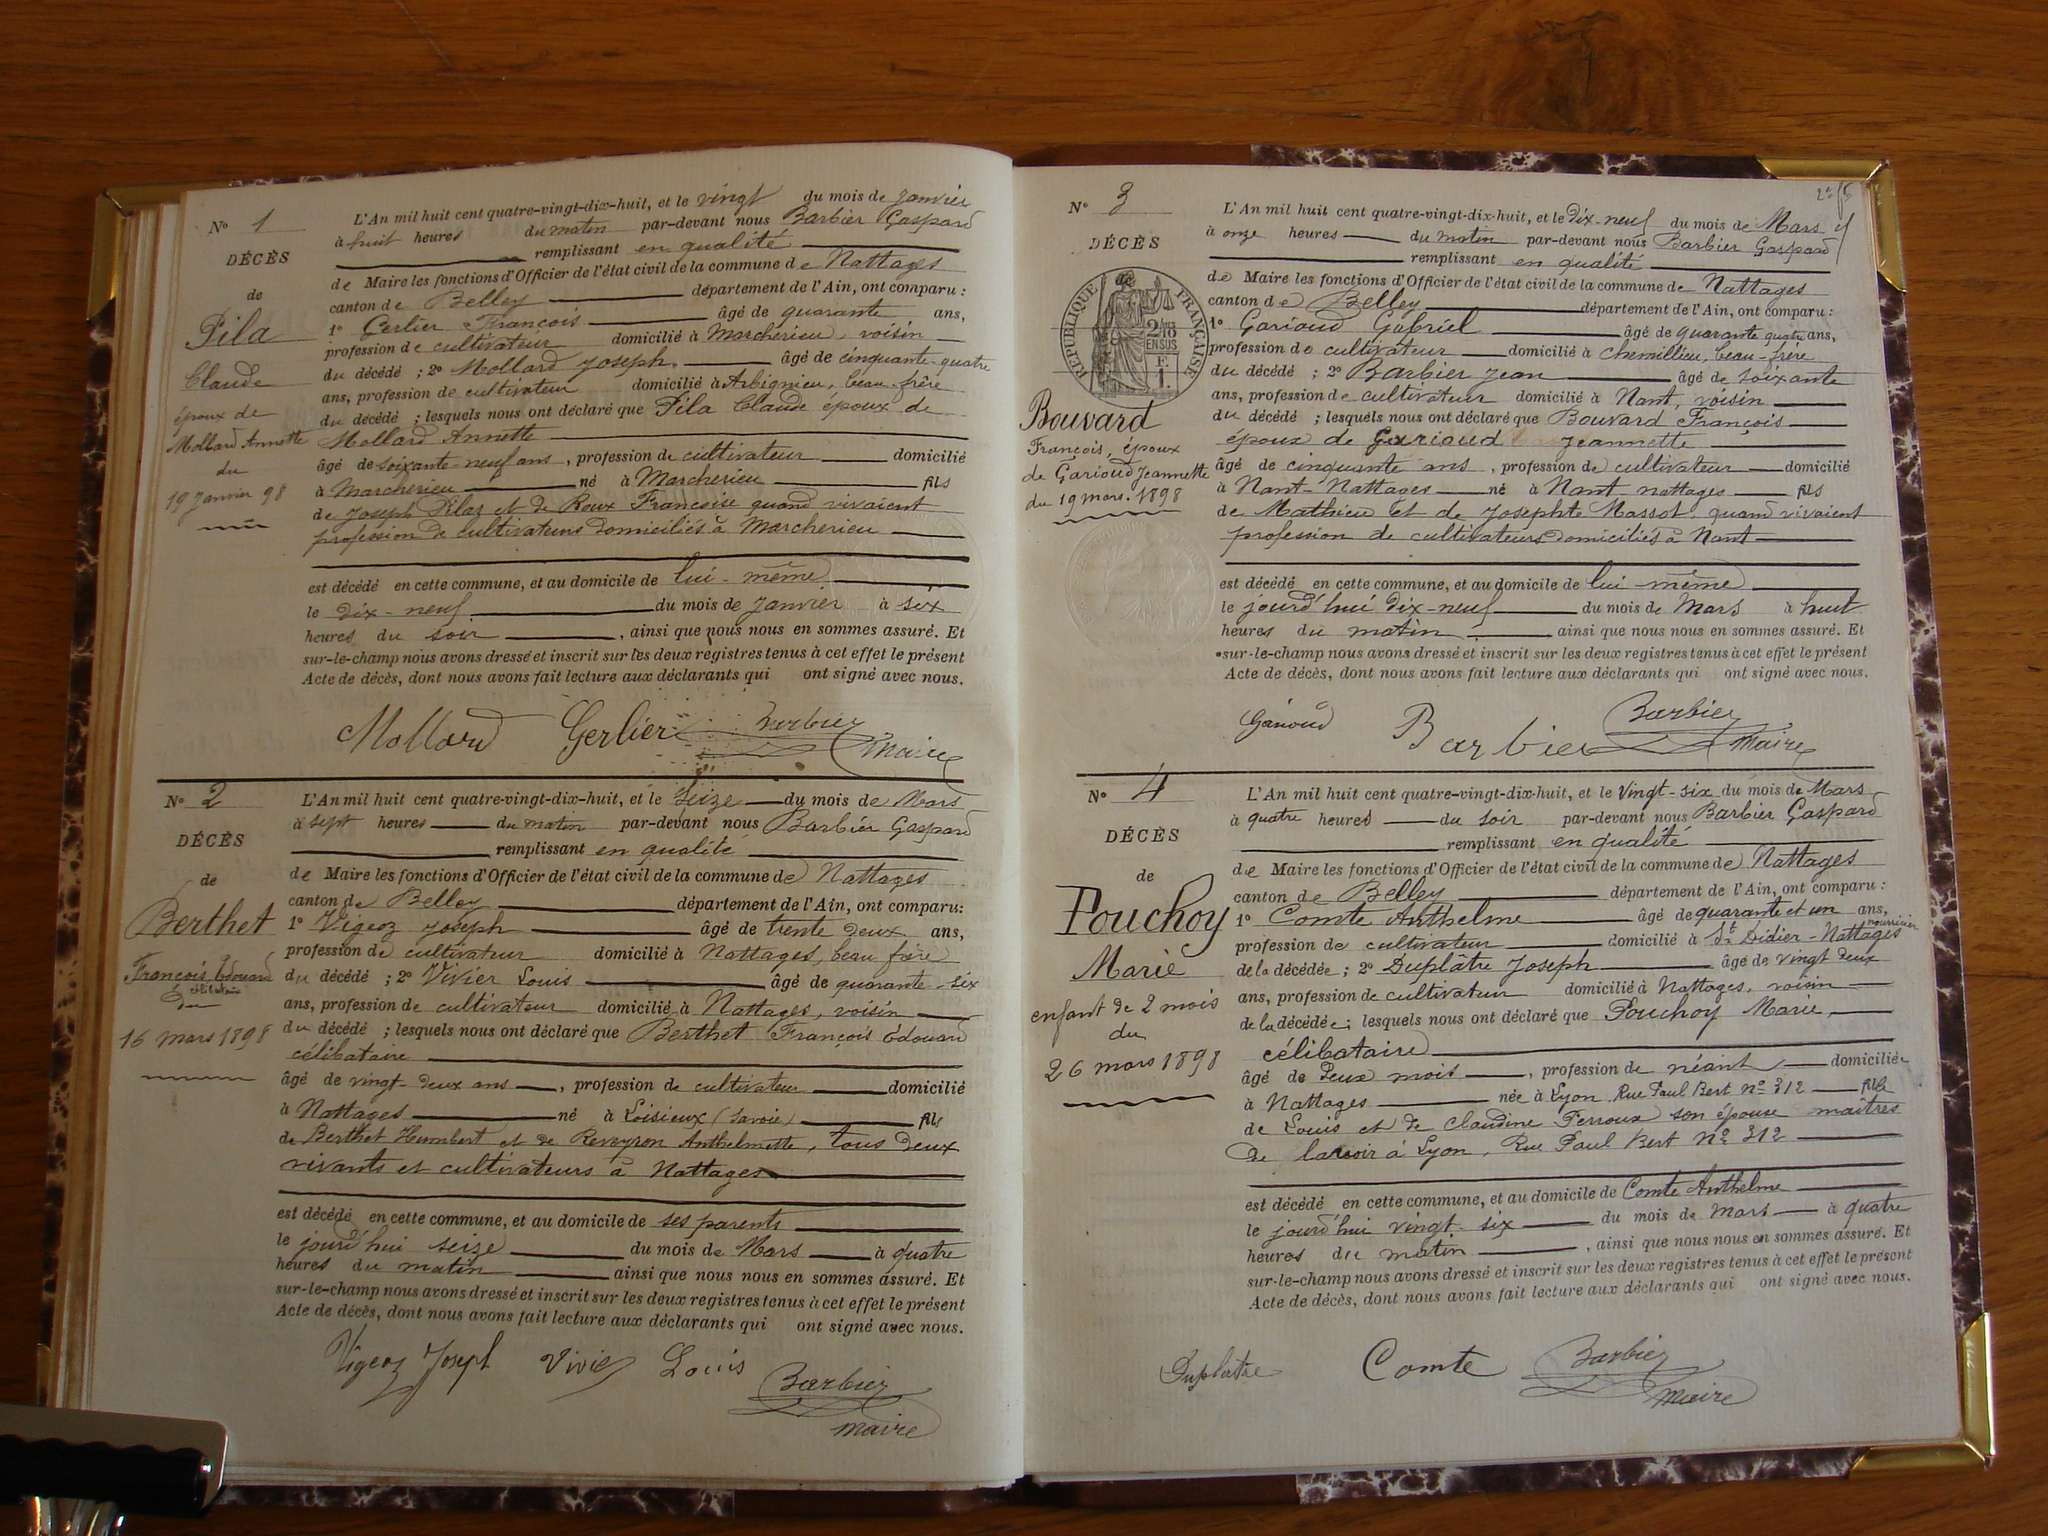 N° 1
DÉCÈS
de
Pila
Claude
époux de
Mollard Annette
du
19 Janvier 98
L'An mil huit cent quatre-vingt-dix-huit, et le vingt du mois de Janvier
à huit heures du matin par-devant nous Barbier Gaspard
remplissant en qualité
de Maire les fonctions d'Officier de l'état civil de la commune de Nattages
canton de Belley département de l'Ain, ont comparu :
1° Gerlier François âgé de quarante ans,
profession de cultivateur domicilié à Marcherieu, voisin
du décédé ; 2° Mollard Joseph. âgé de cinquante-quatre
ans, profession de cultivateur domicilié à Arbignieu, beau-frère
du décédé ; lesquels nous ont déclaré que Pila Claude époux de
Mollard Annette
âgé de soixante-neuf ans, profession de cultivateur domicilié
à Marcherieu né à Marcherieu fils
de Joseph Pilaz et de Roux Françoise quand vivaient
profession de cultivateurs domiciliés à Marcherieu
est décédé en cette commune, et au domicile de lui-même
le dix-neuf du mois de Janvier à six
heures du soir, ainsi que nous nous en sommes assuré. Et
sur-le-champ nous avons dressé et inscrit sur les deux registres tenus à cet effet le présent
Acte de décès, dont nous avons fait lecture aux déclarants qui ont signé avec nous.
Mollard Gerlier Barbier
Maire
N° 2
DÉCÈS
de
Berthet
François Edouard
célibataire
du
16 mars 1898
L'An mil huit cent quatre-vingt-dix-huit, et le Seize du mois de Mars
à sept heures du matin par-devant nous Barbier Gaspard
remplissant en qualité
de Maire les fonctions d'Officier de l'état civil de la commune de Nattages
canton de Belley département de l'Ain, ont comparu :
1° Vigeoz Joseph âgé de trente deux ans,
profession de cultivateur domicilié à Nattages, beau frère
du décédé ; 2° Vivier Louis âgé de quarante-six
ans, profession de cultivateur domicilié à Nattages, voisin
du décédé ; lesquels nous ont déclaré que Berthet François Edouard
célibataire
âgé de vingt-deux ans, profession de cultivateur domicilié
à Nattages né à Loisieux (Savoie) fils
de Berthet Humbert et de Reveyron Anthelmette, tous deux
vivants et cultivateurs à Nattages
est décédé en cette commune, et au domicile de ses parents
le jourd'hui seize du mois de Mars à quatre
heures du matin ainsi que nous nous en sommes assuré. Et
sur-le-champ nous avons dressé et inscrit sur les deux registres tenus à cet effet le présent
Acte de décès, dont nous avons fait lecture aux déclarants qui ont signé avec nous.
Vigeoz Joseph Vivier Louis Barbier
maire
N° 3
DÉCÈS
RÉPUBLIQUE FRANÇAISE
2/10 EN SUS
F. 1.
Bouvard
François, époux
de Garioud Jeannette
du 19 mars 1898
L'An mil huit cent quatre-vingt-dix-huit, et le Dix-neuf du mois de Mars
à onze heures du matin par-devant nous Barbier Gaspard
remplissant en qualité
de Maire les fonctions d'Officier de l'état civil de la commune de Nattages
canton de Belley département de l'Ain, ont comparu :
1° Garioud Gabriel âgé de quarante quatre ans,
profession de cultivateur domicilié à Chemillieu, beau-frère
du décédé ; 2° Barbier Jean âgé de soixante
ans, profession de cultivateur domicilié à Nant, voisin
du décédé ; lesquels nous ont déclaré que Bouvard François
époux de Garioud Jeannette
âgé de cinquante ans, profession de cultivateur domicilié
à Nant-Nattages né à Nant-nattages fils
de Mathieu et de Josephte Massot, quand vivaient
profession de cultivateurs domiciliés à Nant
est décédé en cette commune, et au domicile de lui-même
le jourd'hui dix-neuf du mois de Mars à huit
heures du matin, ainsi que nous nous en sommes assuré. Et
sur-le-champ nous avons dressé et inscrit sur les deux registres tenus à cet effet le présent
Acte de décès, dont nous avons fait lecture aux déclarants qui ont signé avec nous.
Garioud Barbier Barbier
Maire
N° 4
DÉCÈS
de
Fouchoy
Marie
enfant de 2 mois
du
26 mars 1898
L'An mil huit cent quatre-vingt-dix-huit, et le Vingt-six du mois de Mars
à quatre heures du soir par-devant nous Barbier Gaspard
remplissant en qualité
de Maire les fonctions d'Officier de l'état civil de la commune de Nattages
canton de Belley département de l'Ain, ont comparu :
1° Comte Anthelme âgé de quarante et un ans,
profession de cultivateur domicilié à St Didier-Nattages nourricier
de la décédée ; 2° Duplâtre Joseph âgé de vingt deux
ans, profession de cultivateur domicilié à Nattages, voisin
de la décédée ; lesquels nous ont déclaré que Fouchoy Marie,
célibataire
âgé de Deux mois, profession de néant domiciliée
à Nattages née à Lyon Rue Paul Bert n° 312 fille
de Louis et de Claudine Ferroux son épouse maîtres
de lavoir à Lyon, Rue Paul Bert N° 312
est décédé en cette commune, et au domicile de Comte Anthelme
le jourd'hui vingt-six du mois de Mars à quatre
heures du matin, ainsi que nous nous en sommes assuré. Et
sur-le-champ nous avons dressé et inscrit sur les deux registres tenus à cet effet le présent
Acte de décès, dont nous avons fait lecture aux déclarants qui ont signé avec nous.
Duplatre Comte Barbier
Maire